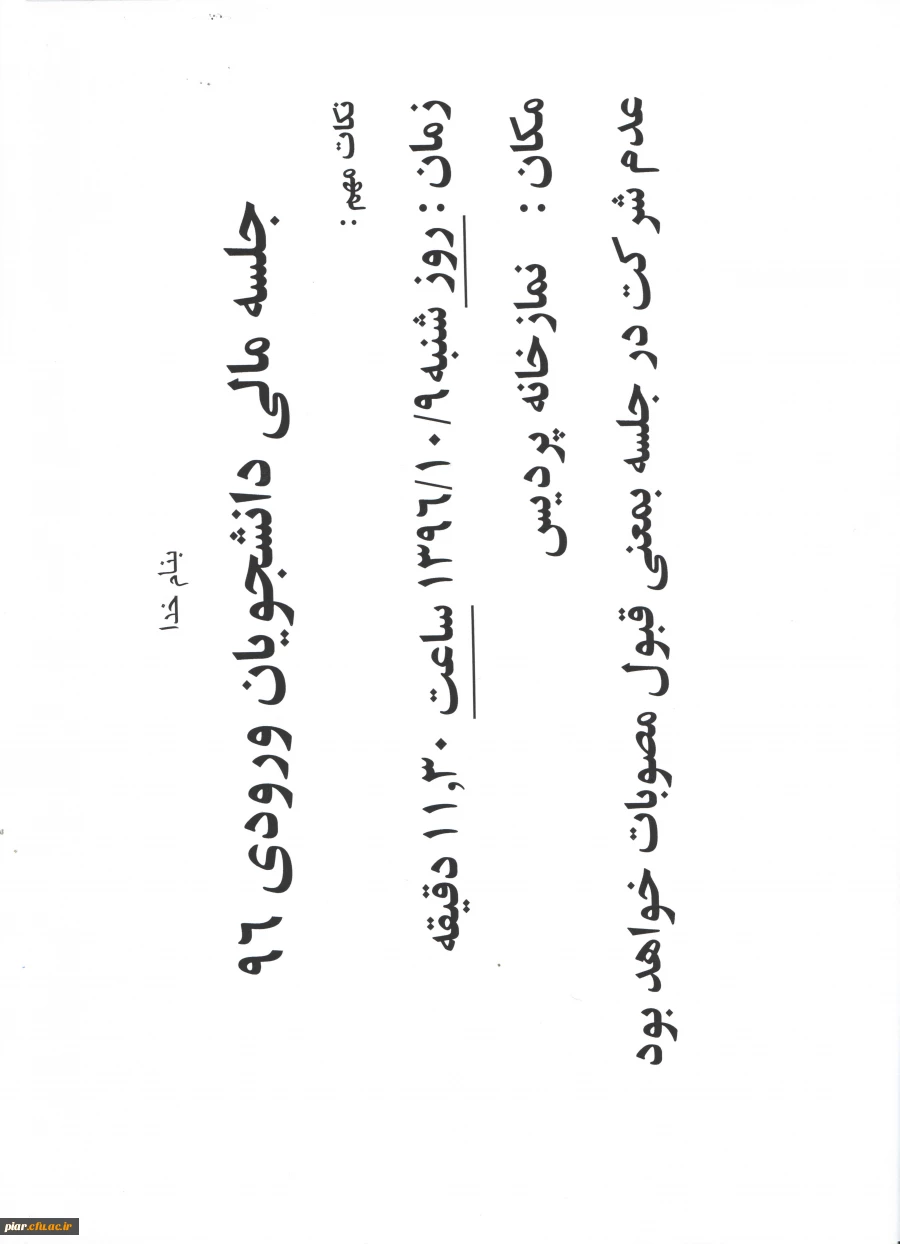 بنام خدا
جلسه مالی دانشجویان ورودی ۹۶
نکات مهم :
زمان : روز شنبه ۱۳۹۶/۱۰/۹ ساعت ۱۱,۳۰ دقیقه
مکان : نمازخانه پردیس
عدم شرکت در جلسه بمعنی قبول مصوبات خواهد بود
piar.cfu.ac.ir